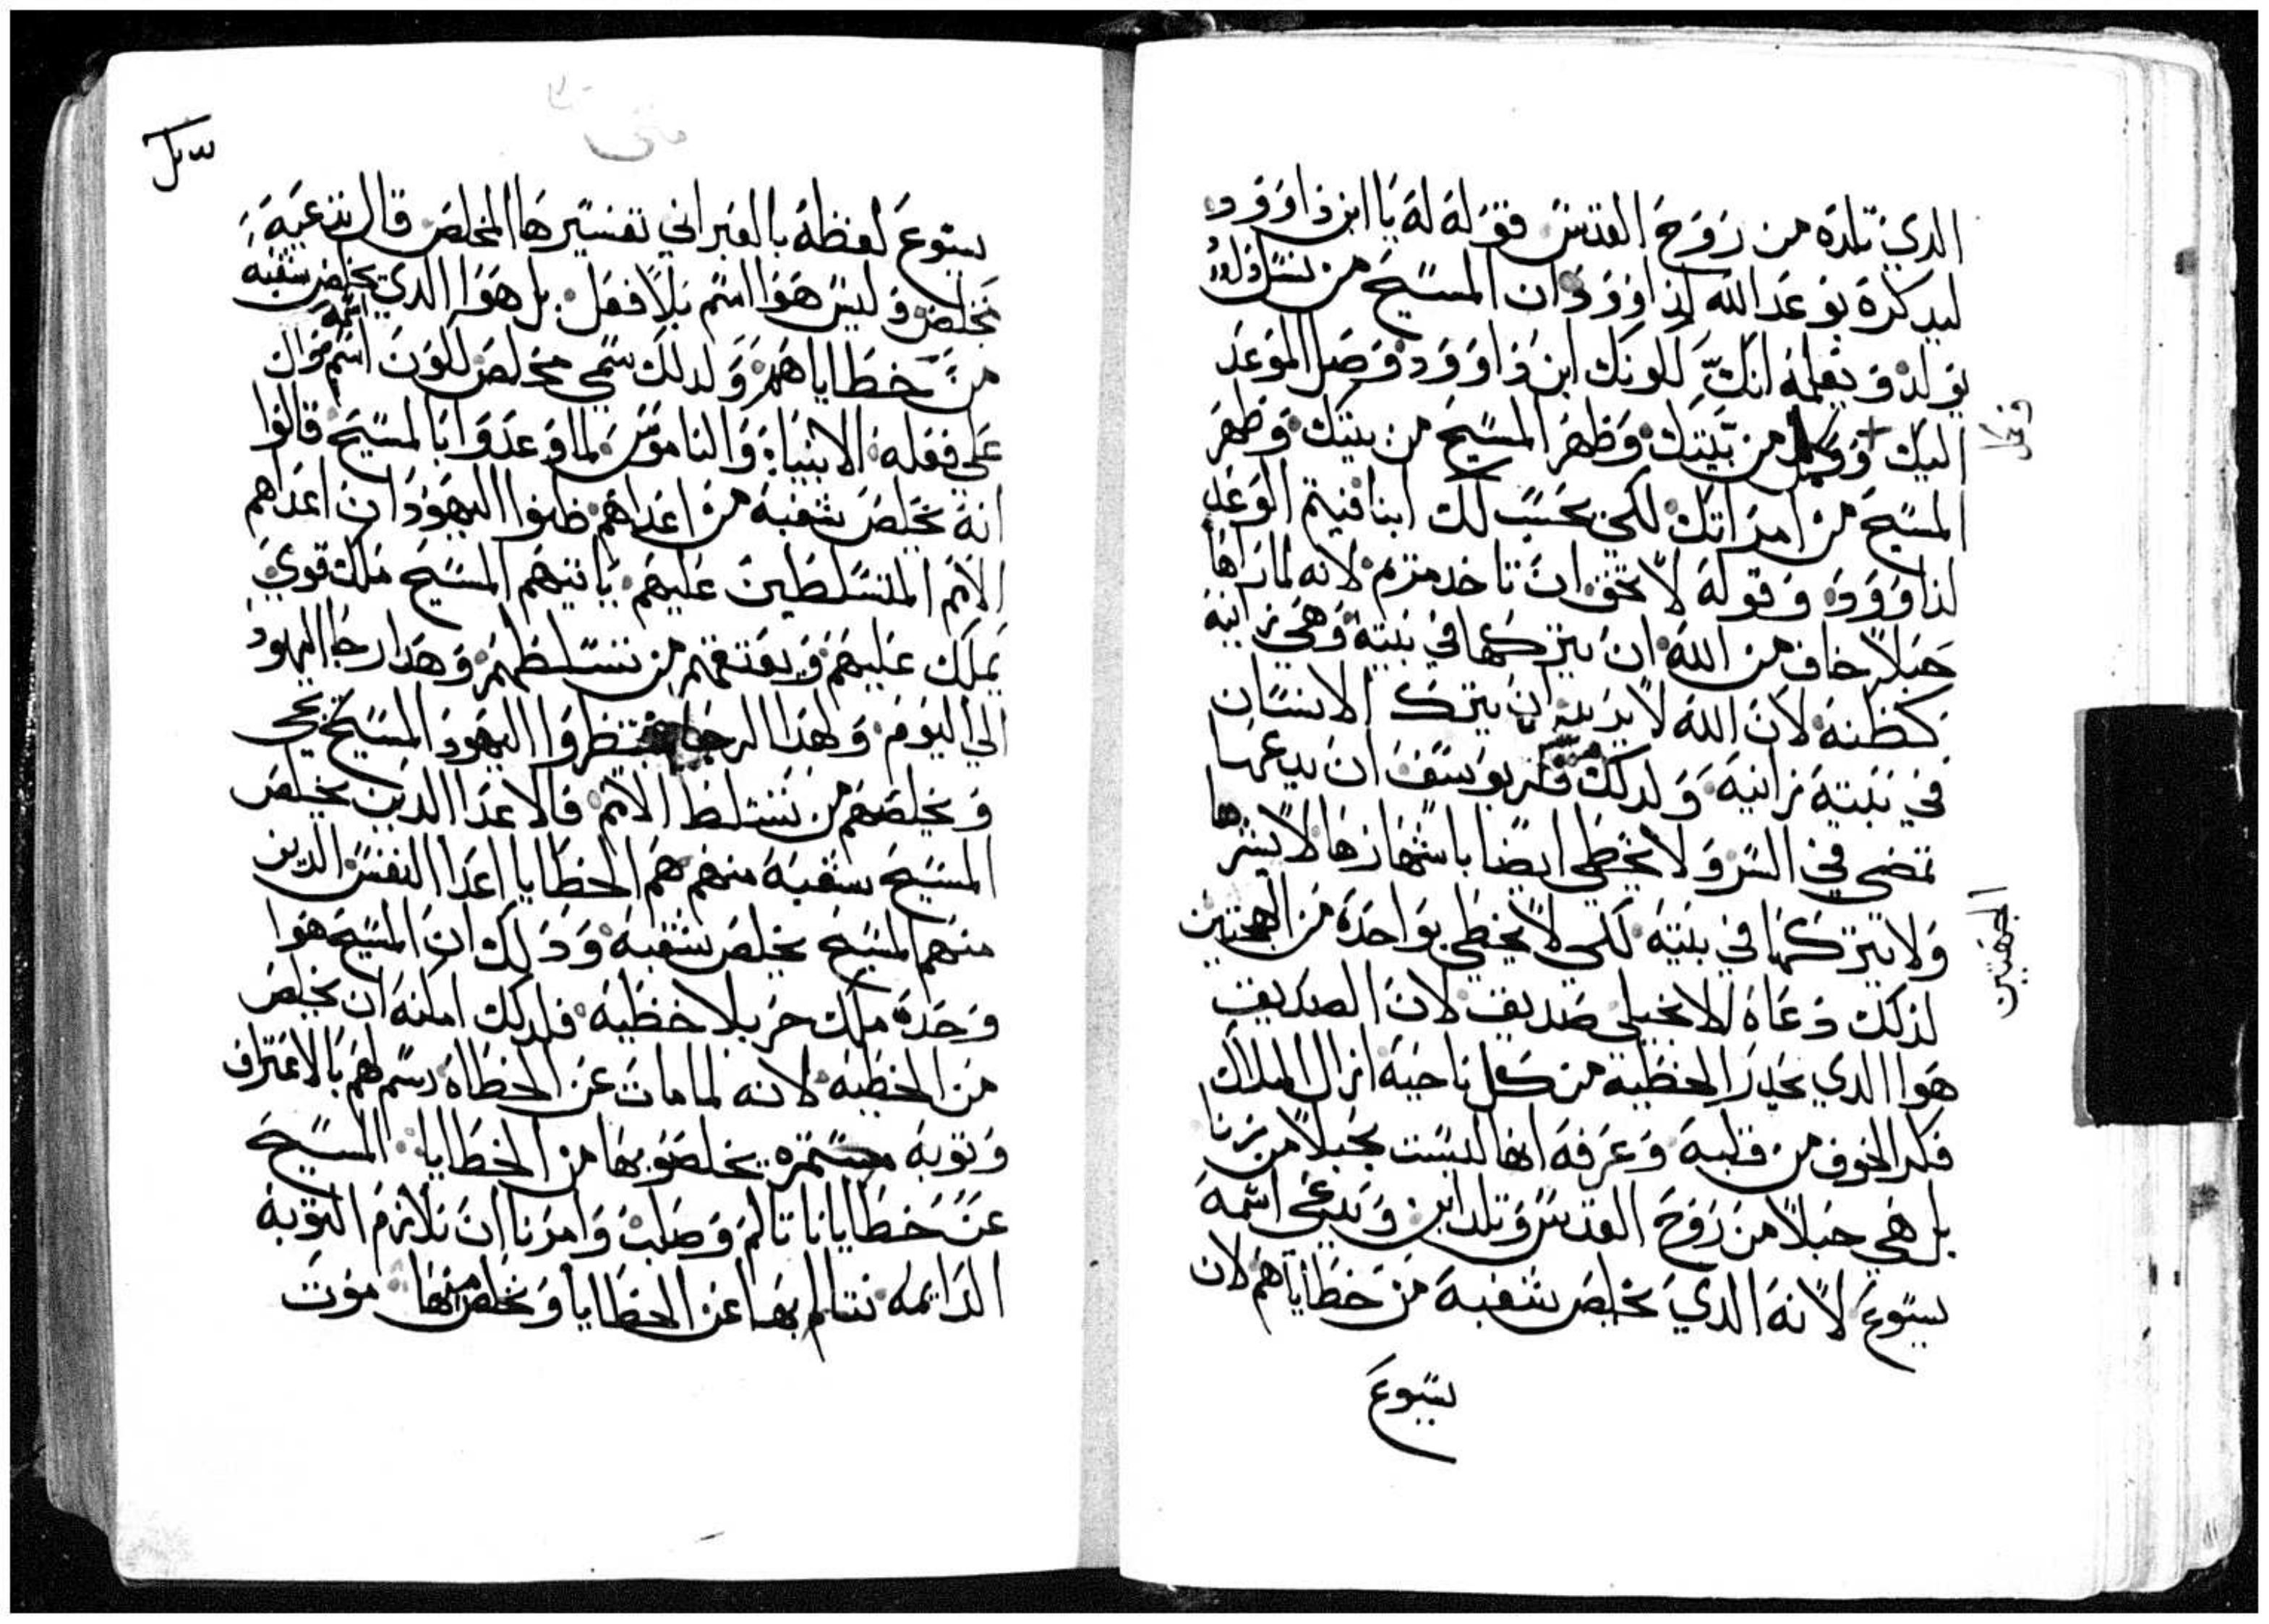 الدي تلده من روح القدس فقوله له يا ابن داوود
ليدكره بوعد الله لداوود ان المسيح من نسل داوود
يولد و يعلمه انك لكونك ابن داوود وصل الموعد
اليك و كمل من بيتك وظهر المسيح من بيتك وظهر
وكمل
المسيح من امراتك لكي يحسب لك ابنا فيتم الوعد
لداوود وقوله لا تخف ان تاخد مريم لانه لما راها
حبلا خاف من الله ان يتركها في بيته وهي زانيه
كظنه لان الله لا يريد ان يترك الانسان
في بيته زانيه ولدلك فكر يوسف ان يدعها
تمضي في السر ولا يخطي ايضا باشهارها لا يشهرها
ولا يتركها في بيته لكي لا يخطي بواحده من الجهتين
الجهتين
لدلك دعاه الانجيلي صديق لان الصديق
هوا الدي يحدر الخطيه من كل ناحيه ازال الملاك
فكر الخوف من قلبه وعرفه انها ليست بحبلا من زنا
بل هي حبلا من روح القدس وتلد ابن ويدعي اسمه
يسوع لانه الدي يخلص شعبه من خطاياهم لان
يسوع
متى
يسوع لفظه بالعبراني تفسيرها المخلص قال شعبه
يخلص و ليس هوا اسم بلا فعل بل هوا الدي يخلص شعبه
من خطاياهم ولدلك سمي مخلص لكون اسمه دال
على فعله الانبياء والناموس لما وعدوا بالمسيح قالوا
انه يخلص شعبه من اعداهم ظنوا اليهود ان اعداهم
الامم المتسلطين عليهم ياتيهم المسيح ملك قوي
يملك عليهم ويعتقهم من تسلطهم وهدا رجا اليهود
الى اليوم ولهدا الرجا ينتظروا اليهود المسيح يجي
ويخلصهم من تسلط الامم فالاعدا الدين يخلص
المسيح شعبه منهم هم الخطايا اعدا النفس الدين
منهم المسيح يخلص شعبه ودلك ان المسيح هوا
وحده ملك حر بلا خطيه فلدلك امكنه ان يخلص
من الخطيه لانه لما مات عن الخطاه رسم لهم بالاعتراف
وتوبه مستمره يخلصو بها من الخطايا المسيح
عن خطايانا تالم وصلب وامرنا ان نلازم التوبه
الدايمه نتالم بها عن الخطايا ونخلص منها موت